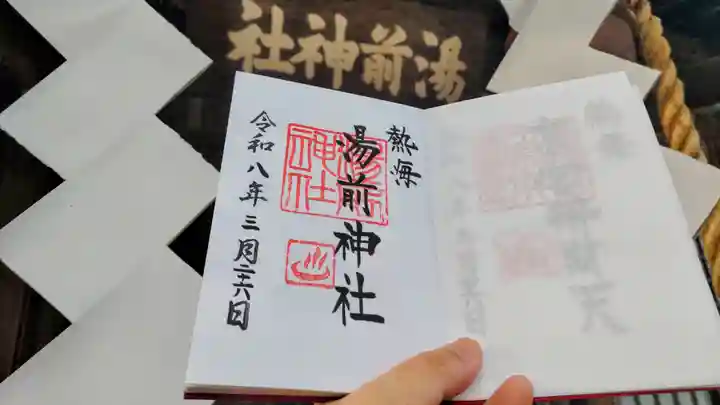 湯前神社
熱海
湯前神社
湯前神社
令和八年三月二十六日